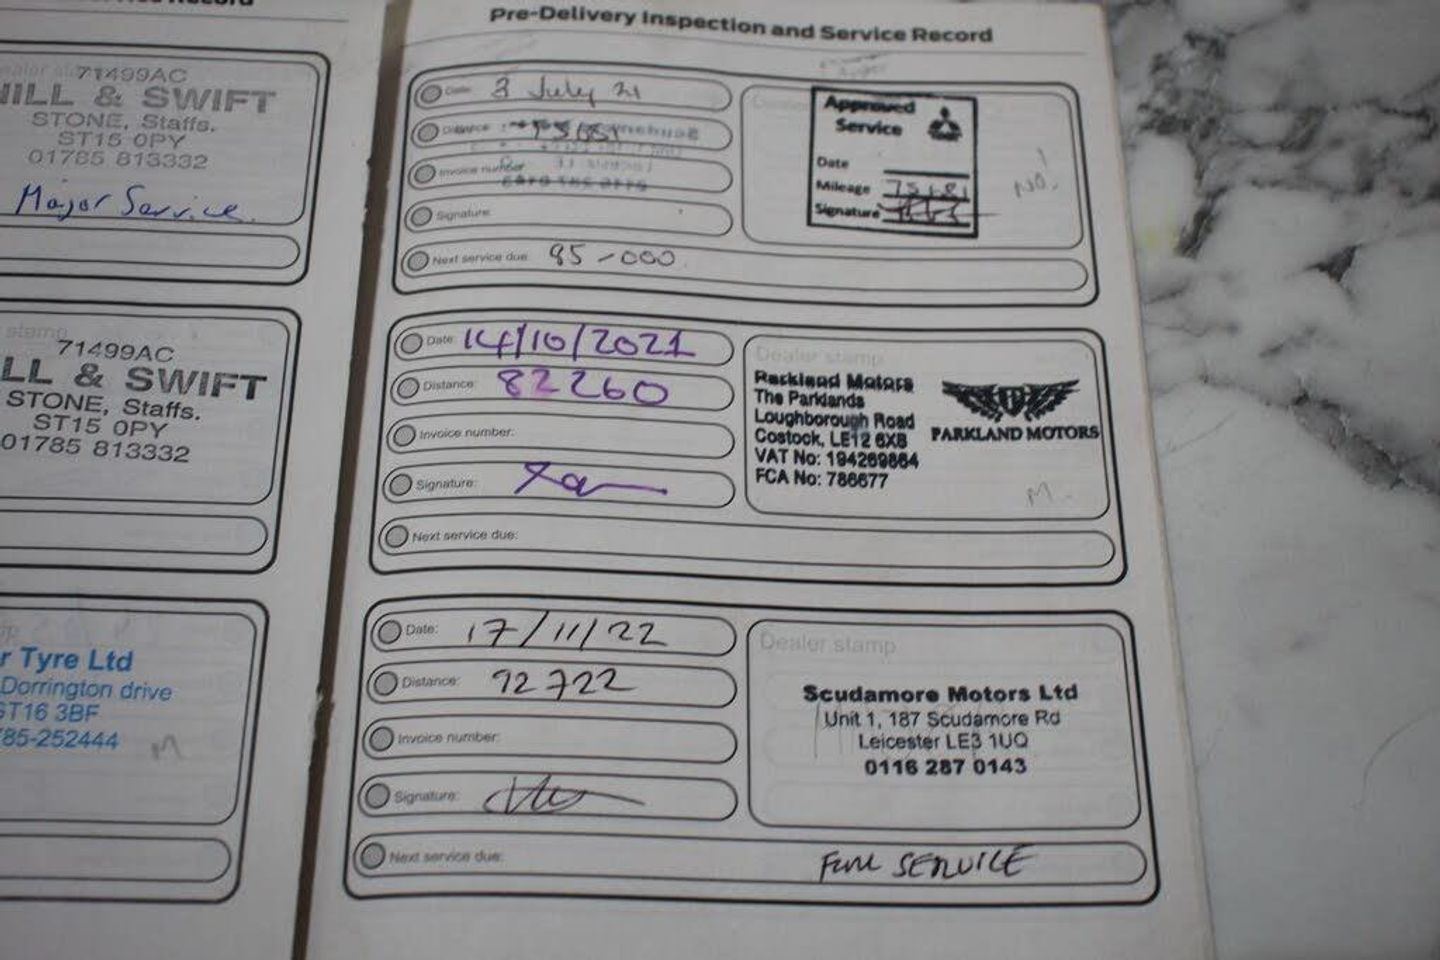 71499AC
HILL & SWIFT
STONE, Staffs.
ST15 0PY
01785 813332
Major Service
71499AC
LL & SWIFT
STONE, Staffs.
ST15 0PY
01785 813332
r Tyre Ltd
Dorrington drive
ST16 3BF
785-252444
M
Pre-Delivery Inspection and Service Record
Date: 3 July 21
Distance:
Invoice number:
Signature:
Next service due: 85-000
Approved
Service
Date
Mileage 75181
Signature
NO.
Date: 14/10/2021
Distance: 82260
Invoice number:
Signature:
Next service due:
Dealer stamp
Parkland Motors
The Parklands
Loughborough Road
Costock, LE12 6XB
VAT No: 194269864
FCA No: 786677
PARKLAND MOTORS
M.
Date: 17/11/22
Distance: 92722
Invoice number:
Signature:
Next service due: FULL SERVICE
Dealer stamp
Scudamore Motors Ltd
Unit 1, 187 Scudamore Rd
Leicester LE3 1UQ
0116 287 0143